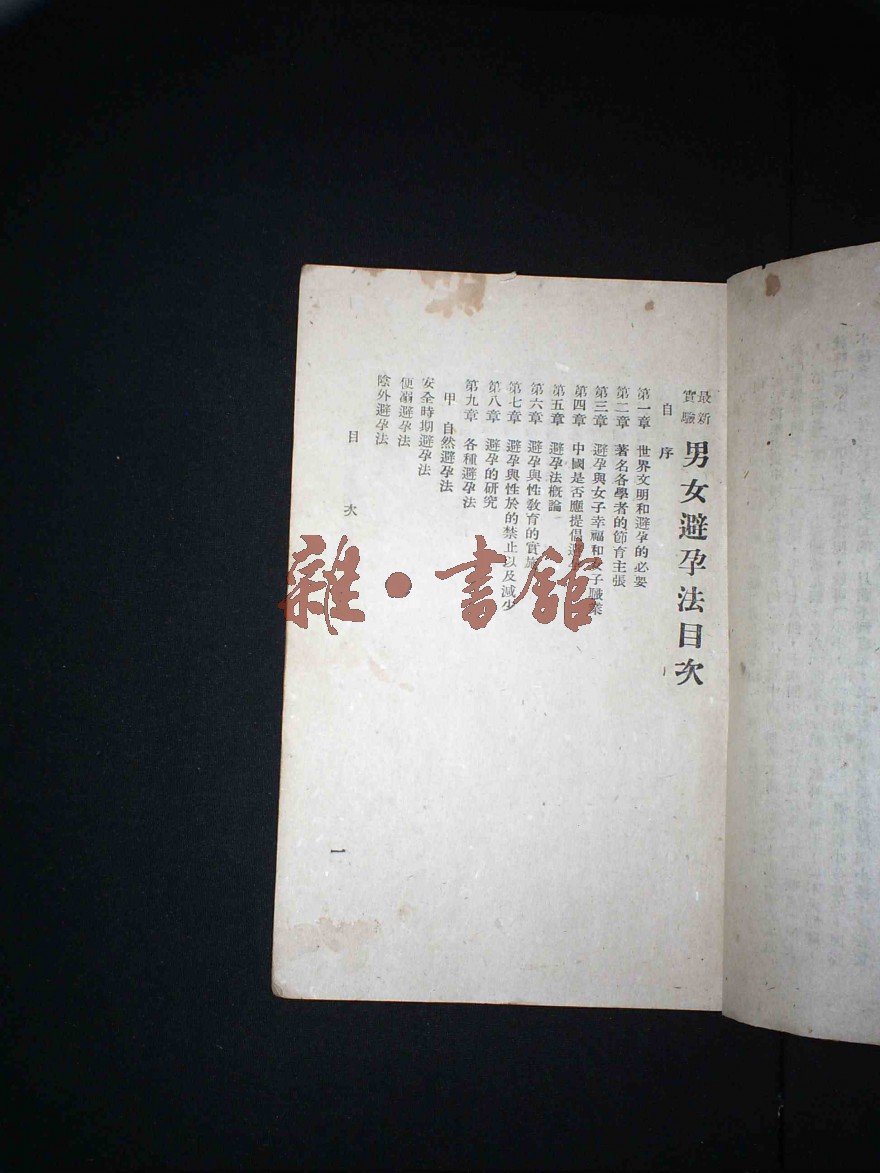 最新實驗 男女避孕法目次
自序
第一章 世界文明和避孕的必要
第二章 著名各學者的節育主張
第三章 避孕與女子幸福和女子職業
第四章 中國是否應提倡
第五章 避孕法概論
第六章 避孕與性教育的實施
第七章 避孕與性於的禁止以及減少
第八章 避孕的研究
第九章 各種避孕法
甲 自然避孕法
安全時期避孕法
便溺避孕法
陰外避孕法
目次
一
雜·書館